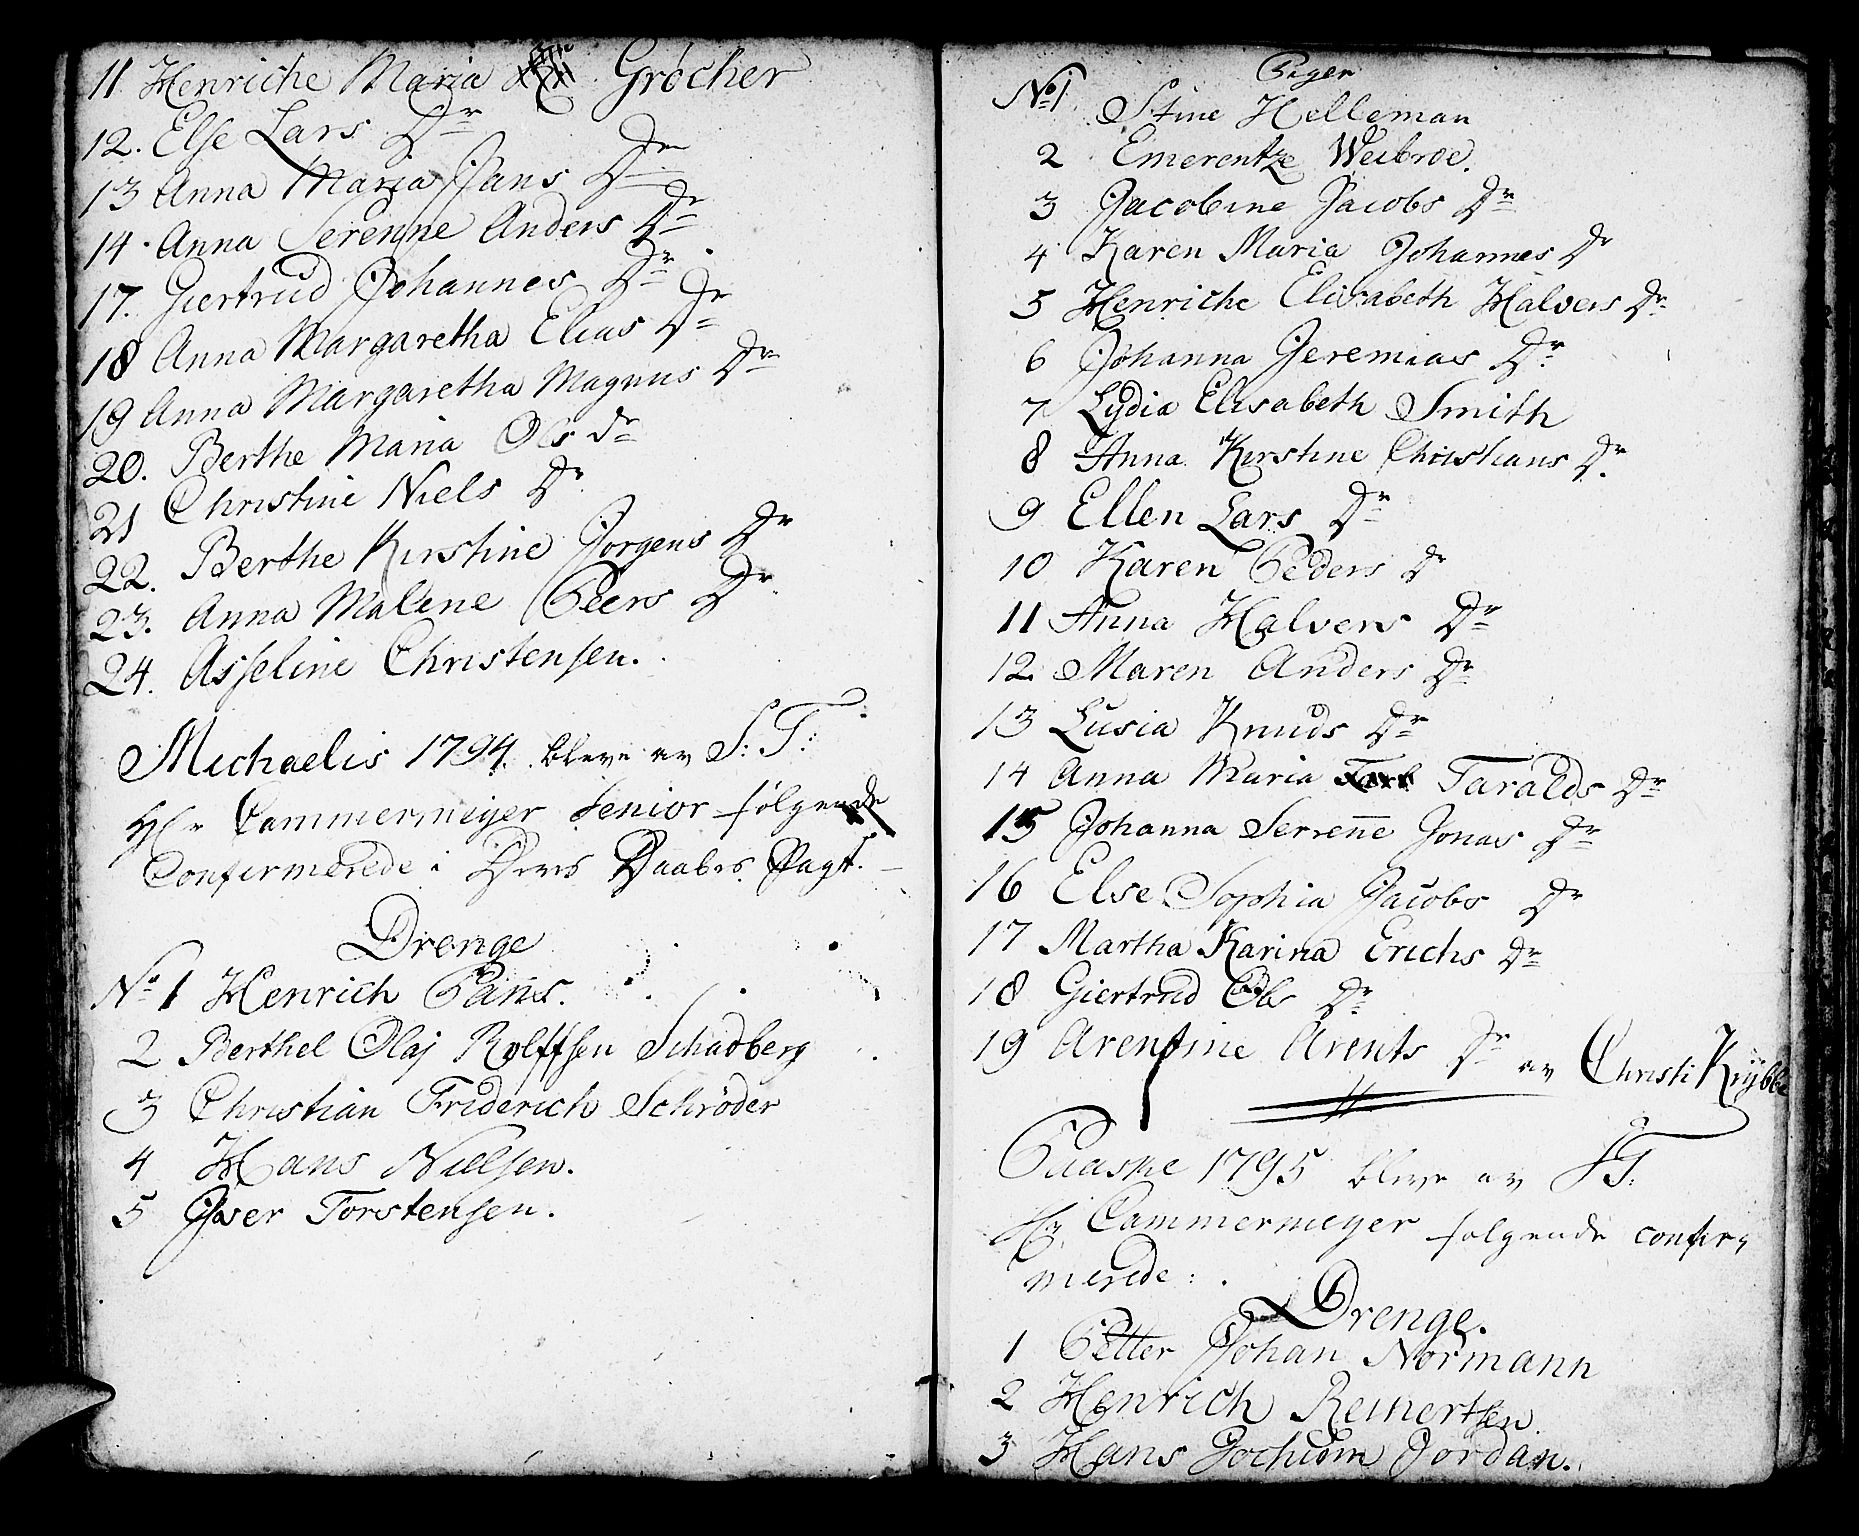 11. Henriche Maria Grøcher
12. Else Lars Dr
13 Anna Maria Jans Dr
14. Anna Serenne Anders Dr
17. Giertrud Johannes Dr
18 Anna Margaretha Elias Dr
19 Anna Margaretha Magnus Dr
20. Berthe Maria Ols dr
21 Christine Niels Dr
22. Berthe Kirstine Jørgens Dr
23. Anna Malene Peers Dr
24. Asseline Christensen.
Michaelis 1794. bleve av S: T:
Hr Cammermeijer Senior følgende
Confirmerede i Deres Daabes Pagt.
Drenge
No 1 Henrich Pans.
2 Berthel Olaj Rolffsen Schadberg
3 Christian Friderich Schrøder
4 Hans Nielsen.
5 Iver Torstensen.
Piger
No 1. Stine Helleman
2 Emerentze Weibroe.
3 Jacobine Jacobs Dr
4 Karen Maria Johannes Dr
5 Henriche Elisabeth Halvers Dr
6 Johanna Jeremias Dr
7 Lydia Elisabeth Smith
8 Anna Kirstine Christians Dr
9 Ellen Lars Dr
10 Karen Peders Dr
11 Anna Halvers Dr
12. Maren Anders Dr
13 Lusia Knuds Dr
14 Anna Maria Taralds Dr
15 Johanna Serrene Jonas Dr
16 Else Sophia Jacobs Dr
17 Martha Karina Erichs Dr
18 Giertrud Ols Dr
19 Arentine Arents Dr av Christi Krybbe
Paaske 1795 bleve av S T:
Hr. Cammermeyer følgende confir
merede:
Drenge.
1 Petter Johan Normann
2 Henrich Reinertsen
3 Hans Jochum Jordan.